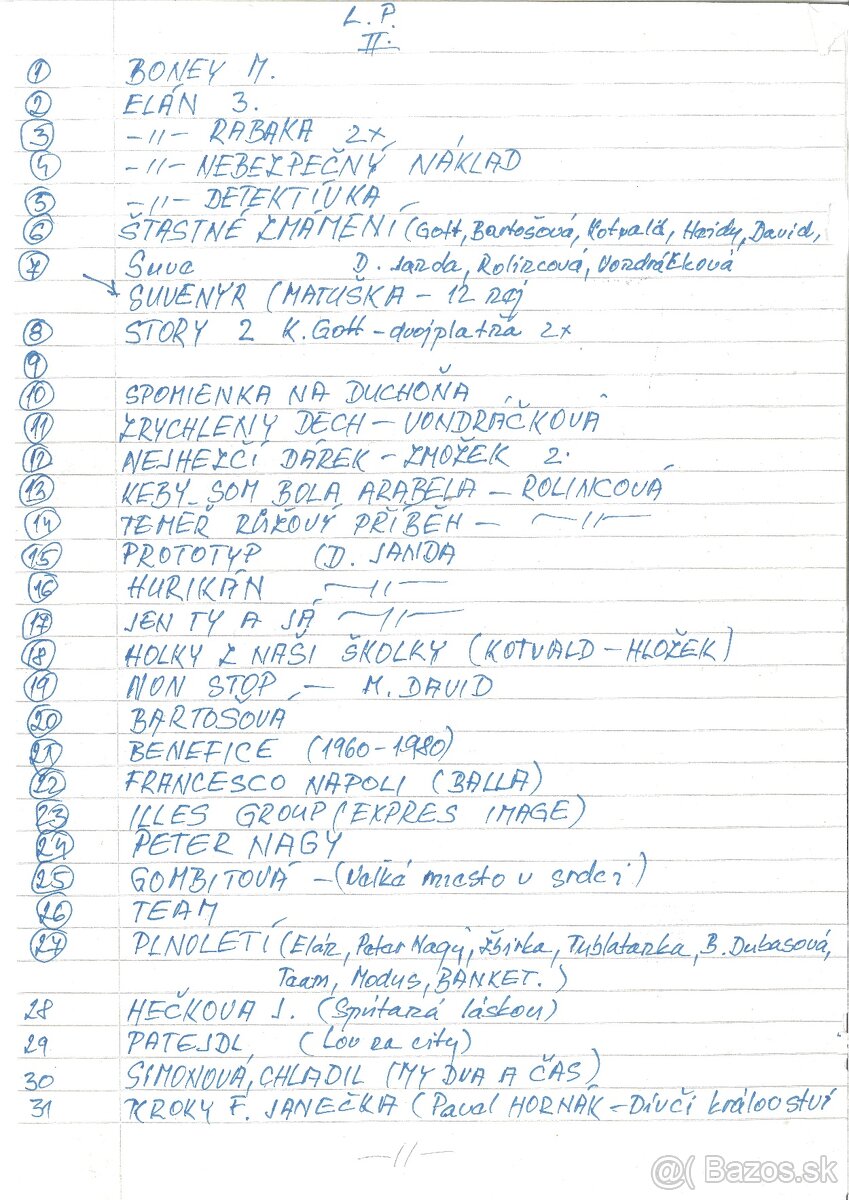 L.P.
II.
1 BONEY M.
2 ELÁN 3.
3 -11- RABAKA 2x
4 -11- NEBEZPEČNÝ NÁKLAD
5 -11- DETEKTÍVKA
6 ŠTASTNÉ ZMÁMENÍ (Gott, Bartošová, Kotvald, Haidy, David,
7 Suve D. Janda, Rolincová, Vondráčková
SUVENÝR (MATUŠKA - 12 naj
8 STORY 2 K. Gott - dvojplatňa 2x
9
10 SPOMIENKA NA DUCHOŇA
11 ZRYCHLENY DECH - VONDRÁČKOVÁ
12 NEJHEZČÍ DÁREK - ZMOŽEK 2.
13 KEBY SOM BOLA ARABELA - ROLINCOVÁ
14 TEMĚŘ RŮŽOVÝ PŘÍBĚH - -11-
15 PROTOTYP (D. JANDA
16 HURIKÁN -11-
17 JEN TY A JÁ -11-
18 HOLKY Z NAŠI ŠKOLKY (KOTVALD - HLOŽEK)
19 NON STOP - M. DAVID
20 BARTOŠOVA
21 BENEFICE (1960-1980)
22 FRANCESCO NAPOLI (BALLA)
23 ILLES GROUP (EXPRES IMAGE)
24 PETER NAGY
25 GOMBITOVÁ - (Veľké miesto v srdci)
26 TEAM
27 PLNOLETÍ (Elán, Peter Nagy, Žbirka, Tublatanka, B. Dubasová,
Team, Modus, BANKET.)
28 HEČKOVA J. (Spútaná láskou)
29 PATEJDL (Lov na city)
30 SIMONOVÁ, CHLADIL (MY DVA A ČAS)
31 KROKY F. JANEČKA (Pavel HORŇÁK - Dívčí království
-11-
@( Bazos.sk